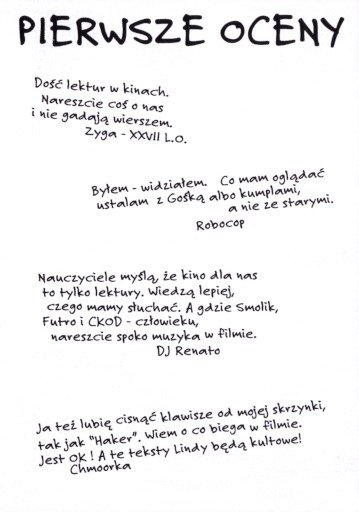 PIERWSZE OCENY
Dość lektur w kinach.
Nareszcie coś o nas
i nie gadają wierszem.
Zyga - XXVII L.O.
Byłem - widziałem. Co mam oglądać
ustalam z Gośką albo kumplami,
a nie ze starymi.
Robocop
Nauczyciele myślą, że kino dla nas
to tylko lektury. Wiedzą lepiej,
czego mamy słuchać. A gdzie Smolik,
Futro i CKOD - człowieku,
nareszcie spoko muzyka w filmie.
DJ Renato
Ja też lubię cisnąć klawisze od mojej skrzynki,
tak jak "Haker". Wiem o co biega w filmie.
Jest OK! A te teksty Lindy będą kultowe!
Chmoorka